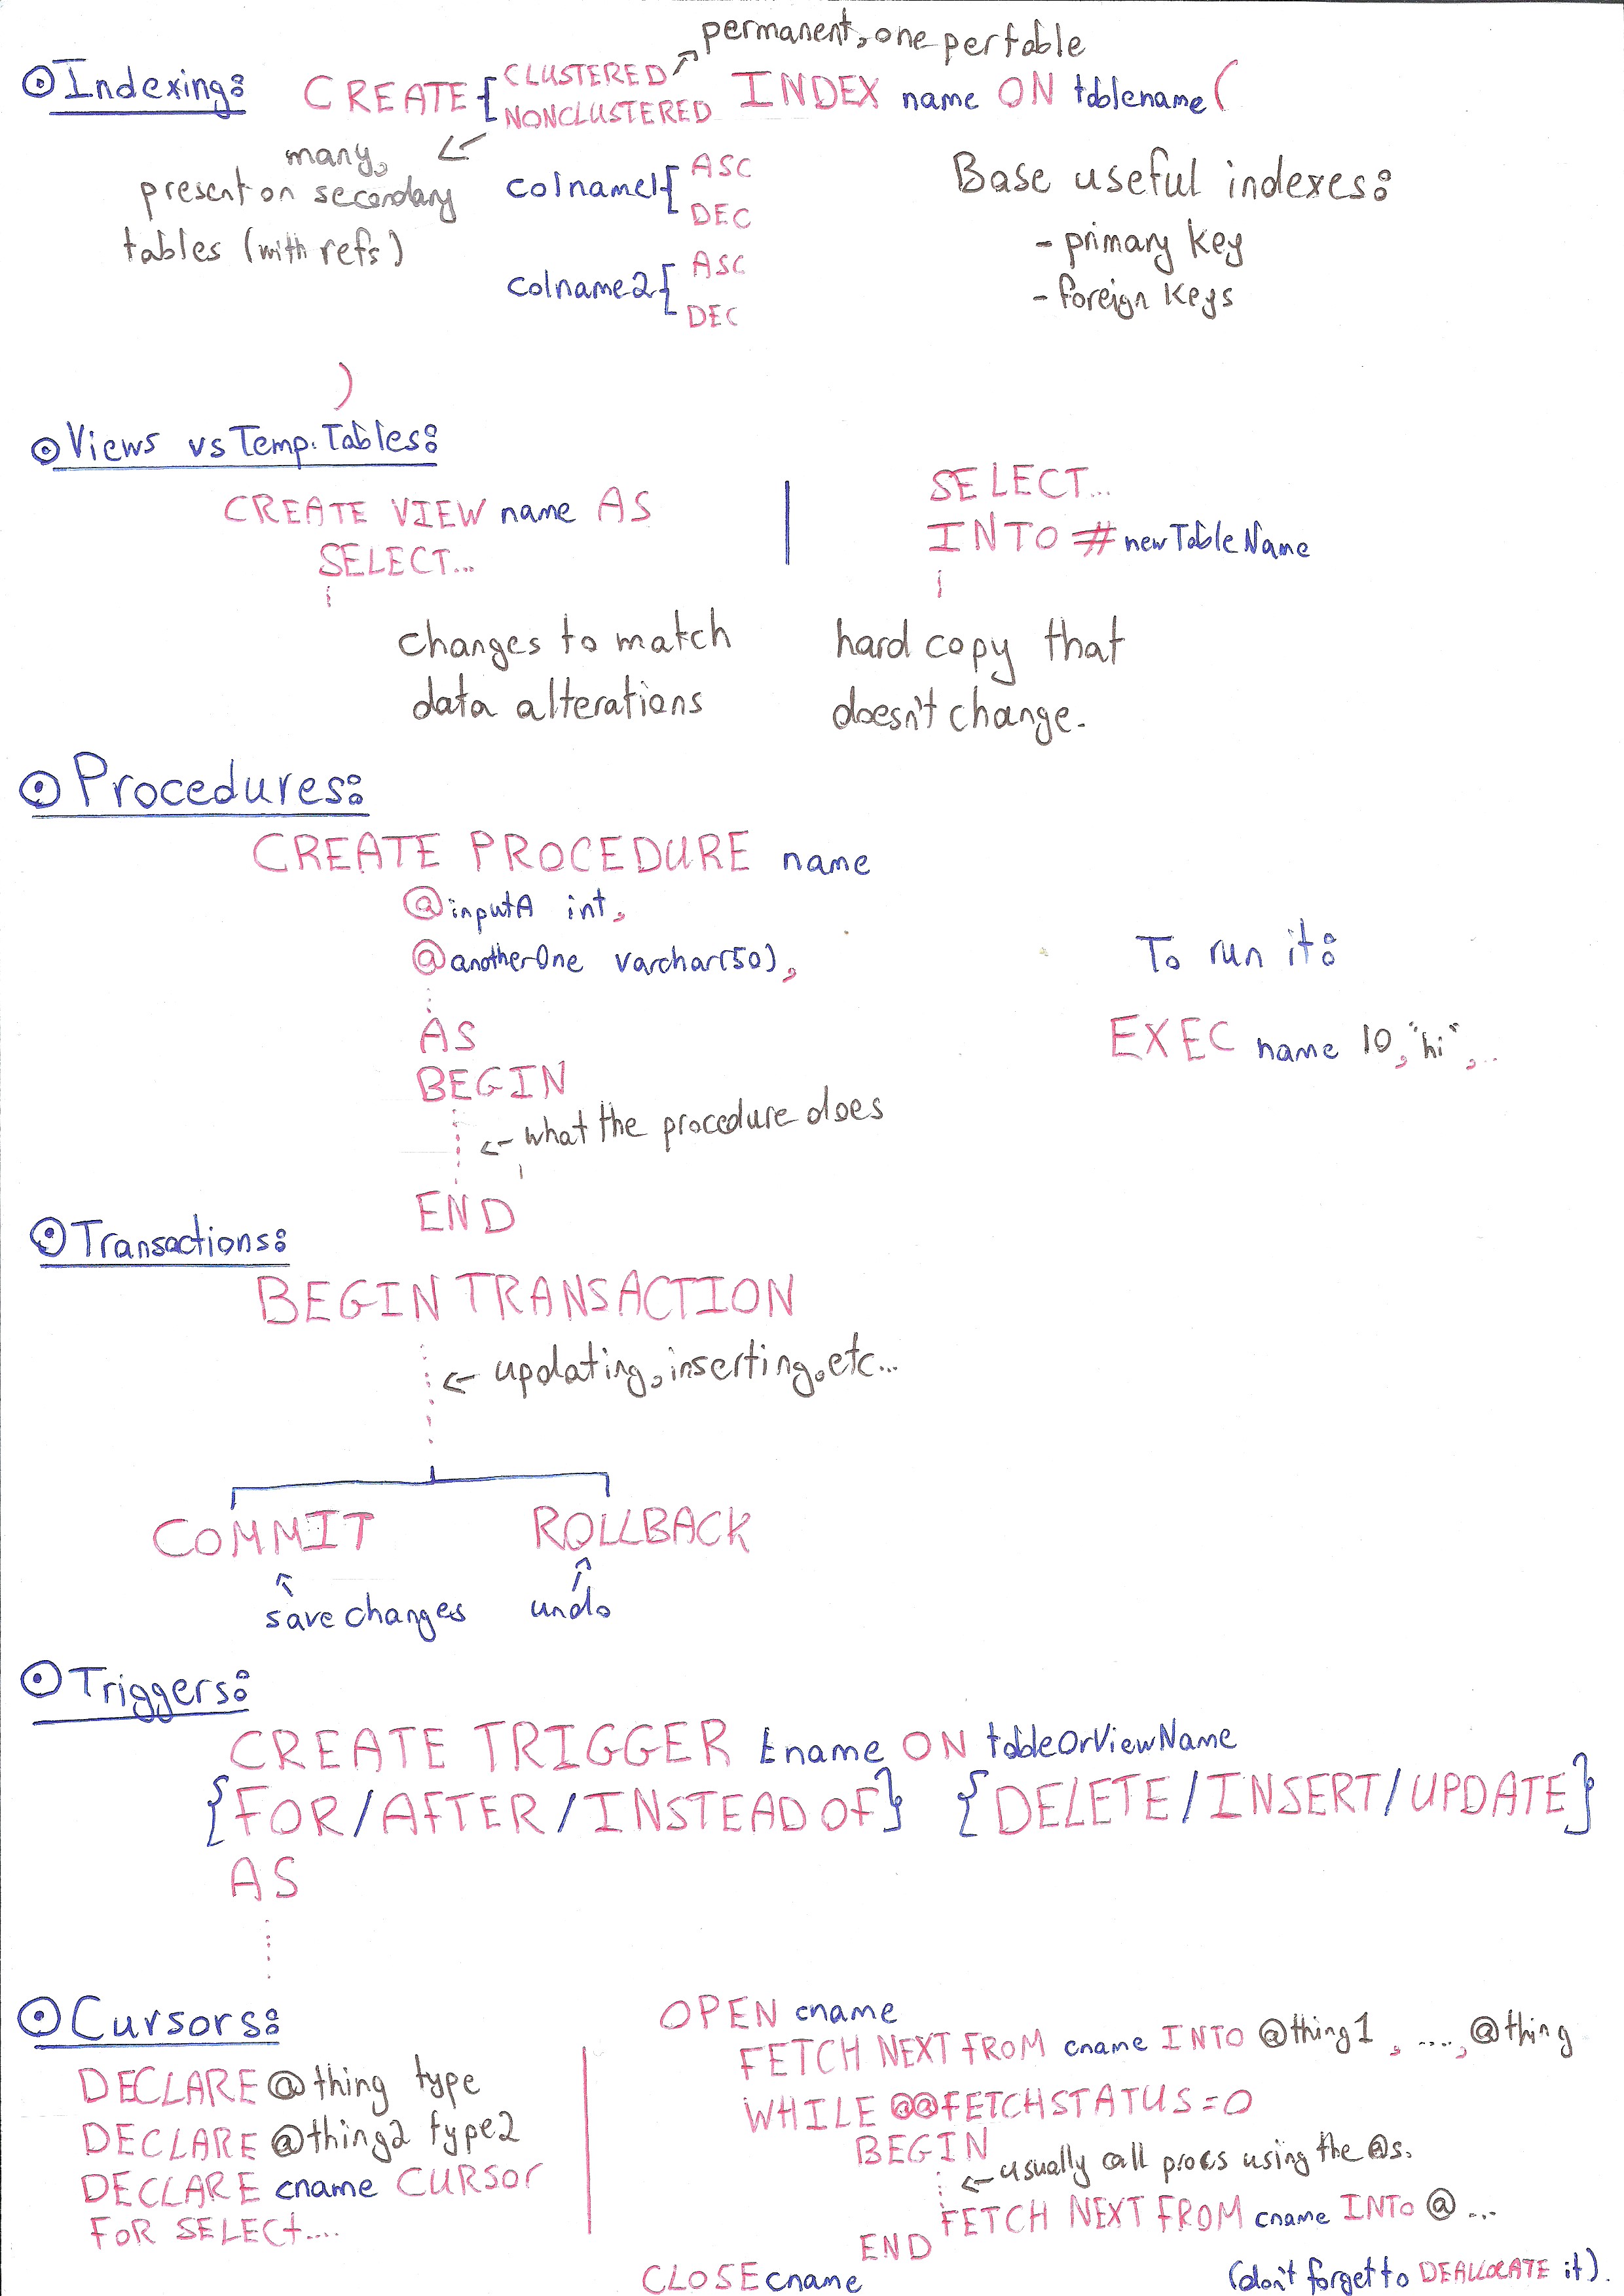 permanent, one per table
⊙ Indexing: CREATE { CLUSTERED NONCLUSTERED INDEX name ON tablename (
many,
present on secondary
tables (with refs)
colname1 { ASC
DEC
colname2 { ASC
DEC
)
Base useful indexes:
- primary key
- foreign keys
⊙ Views vs Temp. Tables:
CREATE VIEW name AS
SELECT...
changes to match
data alterations
SELECT...
INTO #newTableName
hard copy that
doesn't change.
⊙ Procedures:
CREATE PROCEDURE name
@inputA int,
@anotherOne varchar(50),
AS
BEGIN
← what the procedure does
END
To run it:
EXEC name 10, "hi", ..
⊙ Transactions:
BEGIN TRANSACTION
← updating, inserting, etc...
COMMIT ROLLBACK
save changes undo
⊙ Triggers:
CREATE TRIGGER tname ON tableOrViewName
{FOR/AFTER/INSTEAD OF} {DELETE/INSERT/UPDATE}
AS
⊙ Cursors:
DECLARE @thing type
DECLARE @thing2 type2
DECLARE cname CURSOR
FOR SELECT....
OPEN cname
FETCH NEXT FROM cname INTO @thing1, ...., @thing
WHILE @@FETCHSTATUS=0
BEGIN
← usually call procs using the @s.
FETCH NEXT FROM cname INTO @ ...
END
CLOSE cname
(don't forget to DEALLOCATE it).